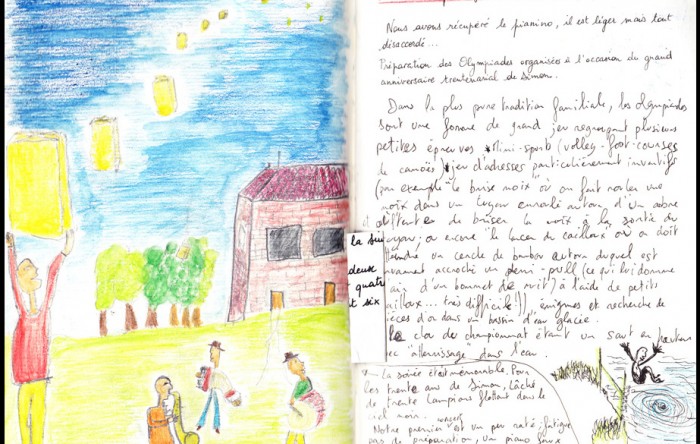 Nous avons récupéré le pianino, il est léger mais tout
désaccordé...
Préparation des Olympiades organisées à l'occasion du grand
anniversaire trentenarial de Simon.
Dans la plus pure tradition familiale, les olympiades
sont une forme de grand jeu regroupant plusieurs
petites épreuves mini-sports (volley-foot-courses
de canoës) jeu d'adresses particulièrement inventifs
(par exemple "le brise noix" où on fait rouler une
noix dans un tuyau enroulé autour d'un arbre
de briser la noix à la sortie du
ou encore "le lancer de cailloux" où on doit
un cercle de bambou autour duquel est
accroché un demi-pull (ce qui lui donne
d'un bonnet de nuit) à l'aide de petits
très difficile!!), énigmes et recherche de
d'or dans un bassin d'eau glacée.
clou de championnat étant un saut en
atterrissage dans l'eau.
la soirée était mémorable. Pour
les trente ans de Simon, lâché
de trente lampions flottant dans le
ciel noir.
concert
Notre premier est un peu raté: fatigue
pas de préparation, un piano sans
la sui
deux
quatr
t six